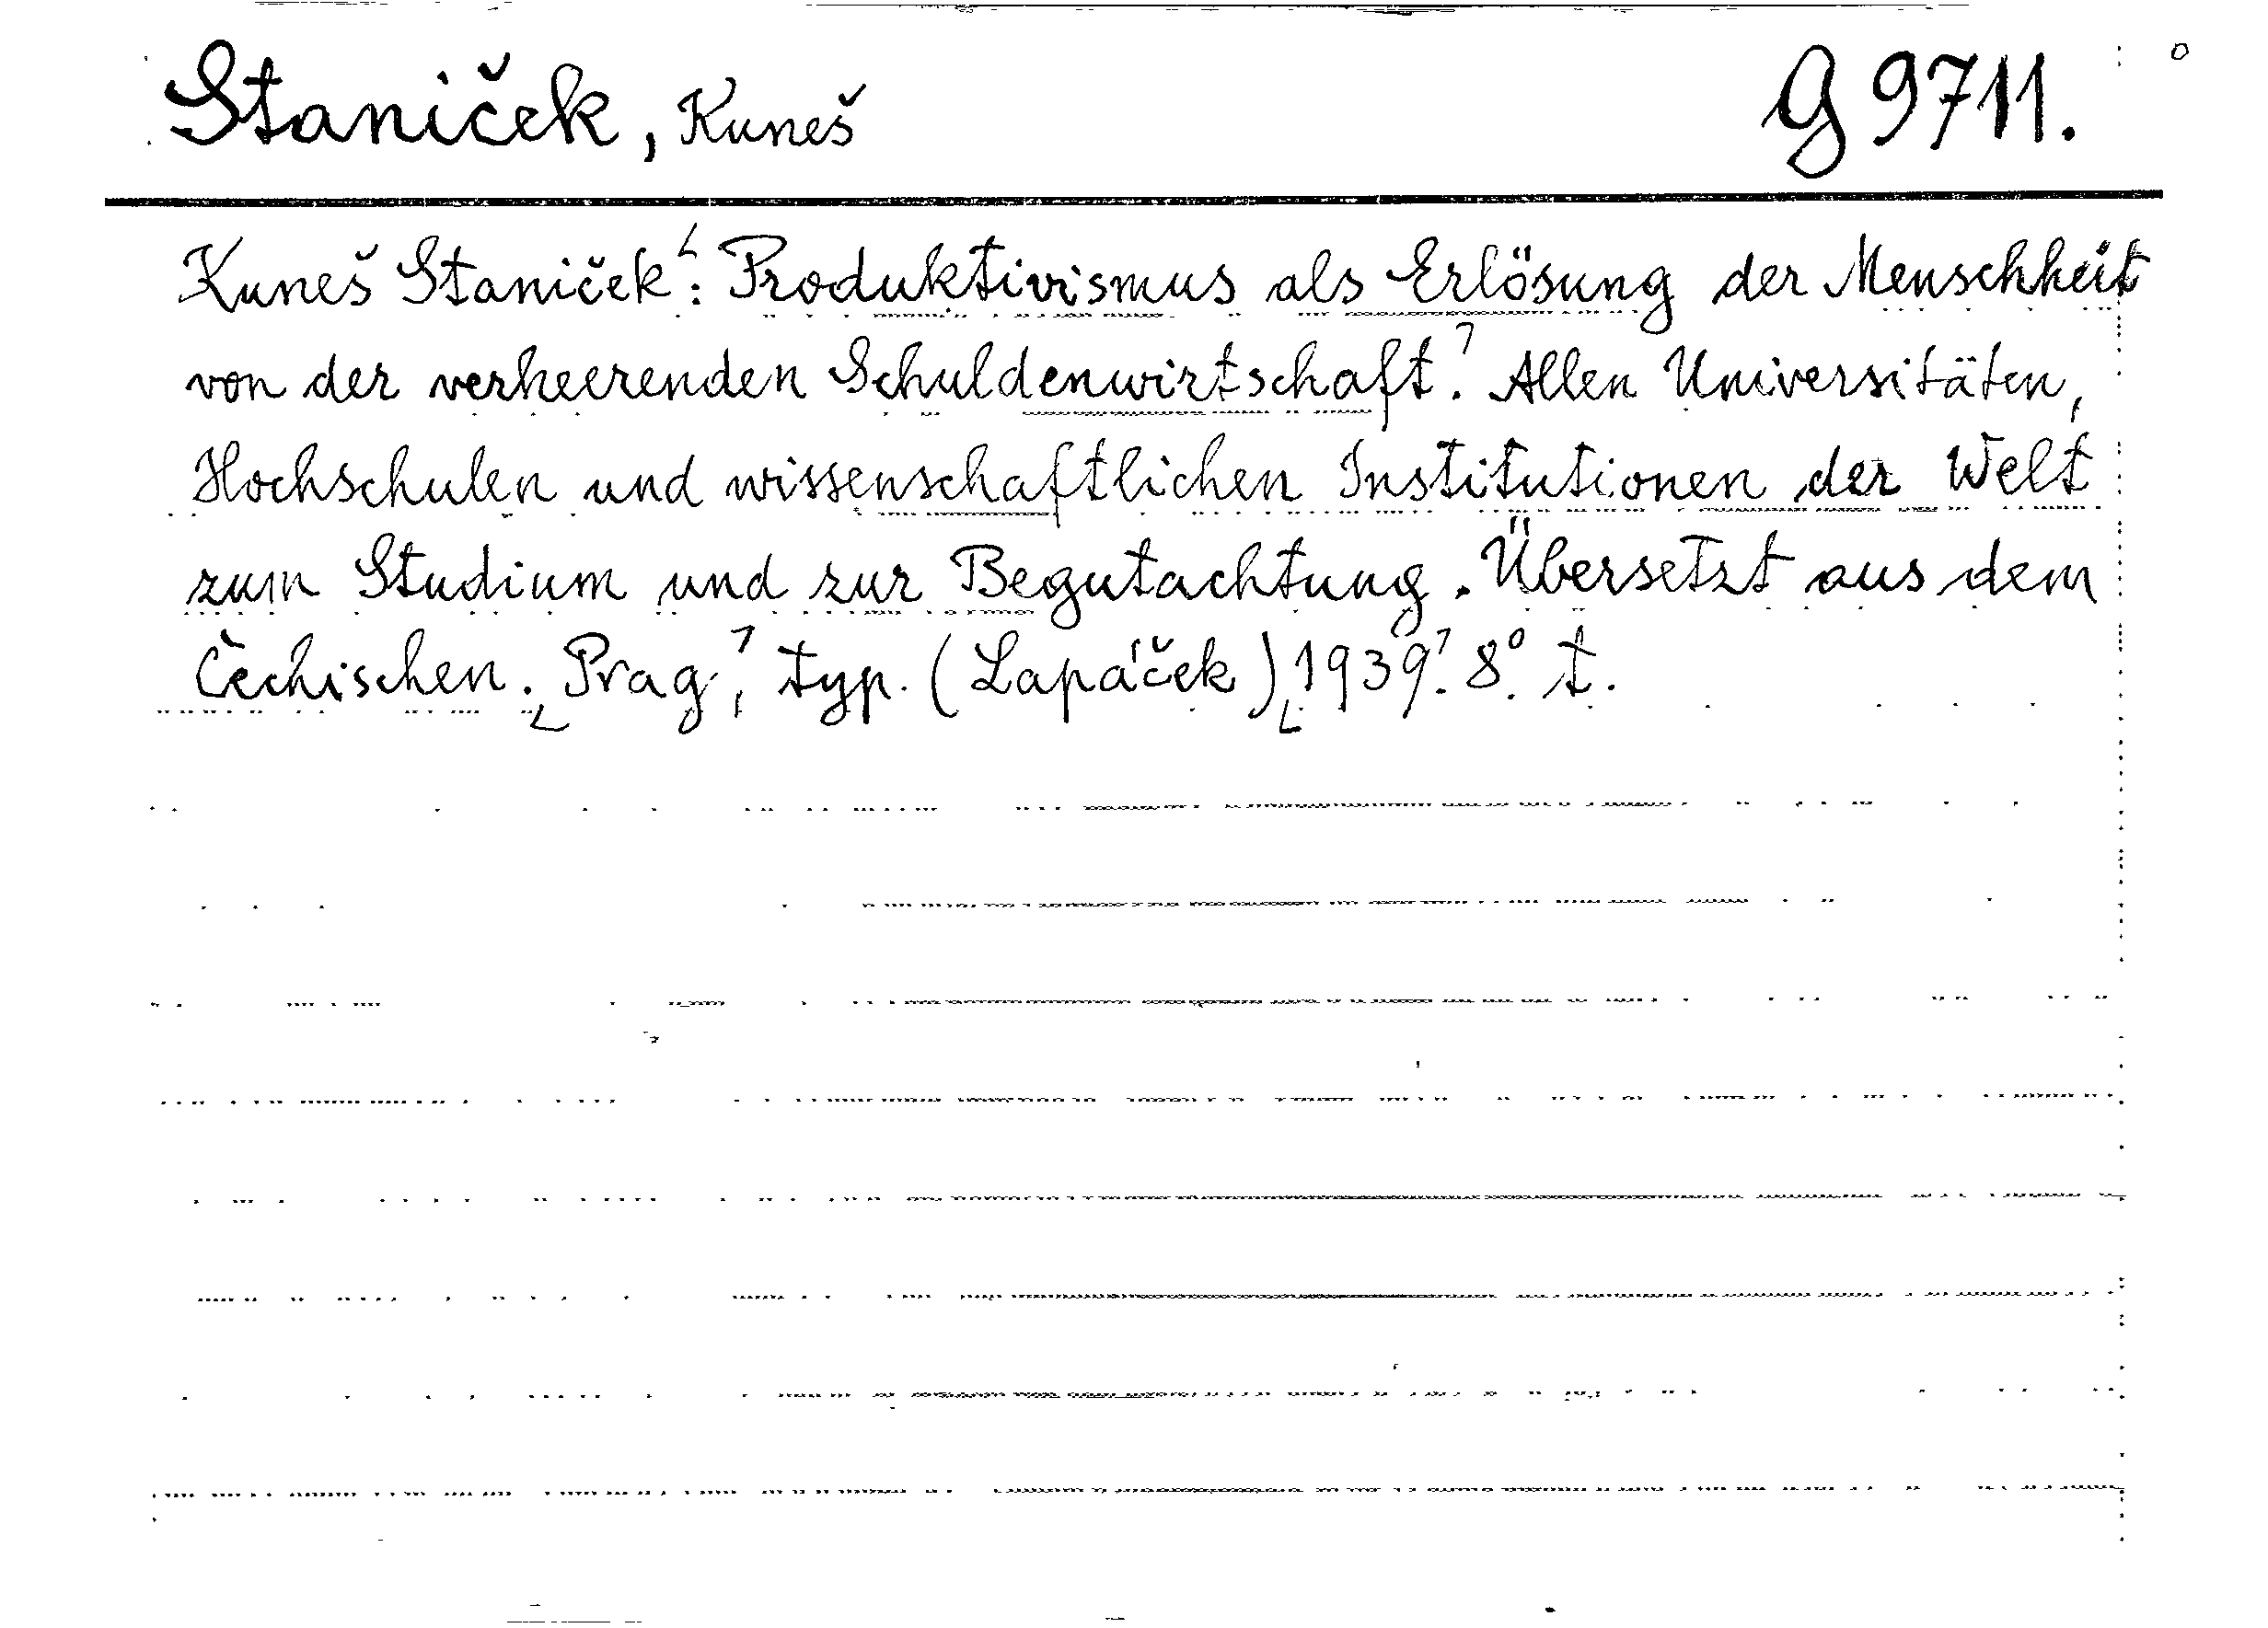 Staniček, Kuneš G 9711.
Kuneš Staniček: Produktivismus als Erlösung der Menschheit
von der verheerenden Schuldenwirtschaft. Allen Universitäten,
Hochschulen und wissenschaftlichen Institutionen der Welt
zum Studium und zur Begutachtung. Übersetzt aus dem
Čechischen. Prag, typ. (Lapáček) 1939. 8° t.